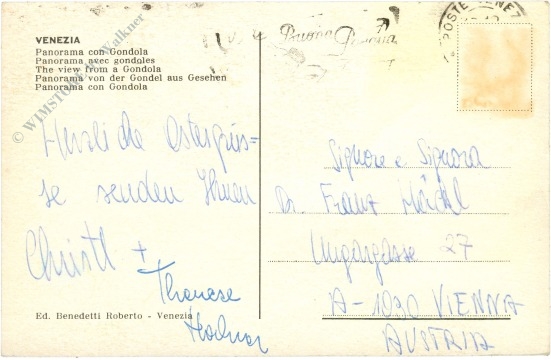 VENEZIA
Panorama con Gondola
Panorama avec gondoles
The view from a Gondola
Panorama von der Gondel aus Gesehen
Panorama con Gondola
© WIMSTUBE Walkner
POSTE VENEZ
Herzliche Ostergrüs=
se senden Ihnen
Christl +
Therese
Signore e Signora
Dr. Franz
Ungargasse 27
A-1030 VIENNA
AUSTRIA
Ed. Benedetti Roberto - Venezia